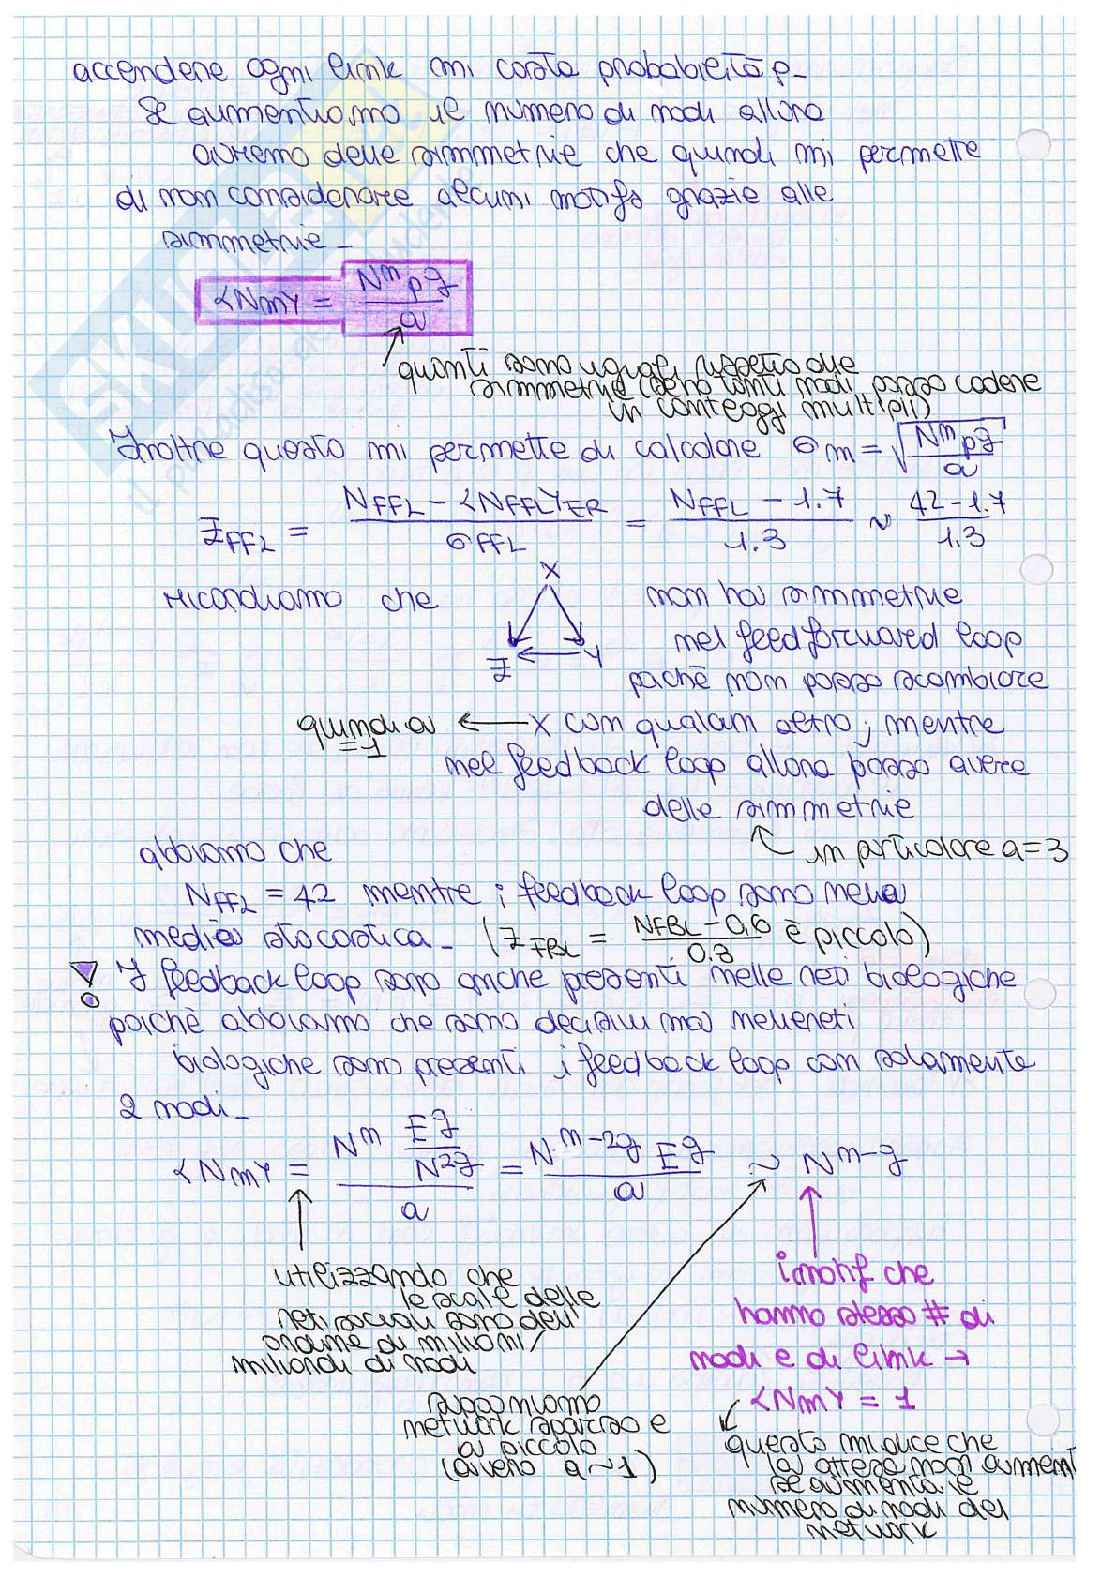 accendere ogni link mi costa probabilità p-
Se aumentiamo il numero di nodi allora
avremo delle simmetrie che quindi mi permette
di non considerare alcuni motifs grazie alle
simmetrie-
<Nm> = N^n p^g / a
quanti sono uguali rispetto alle
simmetrie (se no tanti nodi posso cadere
in conteggi multipli)
Inoltre questo mi permette di calcolare σm = √(N^n p^g / a)
Z_FFL = (N_FFL - <N_FFL>_ER) / σ_FFL = (N_FFL - 1.7) / 1.3 ~ (42-1.7) / 1.3
X
ricordiamo che
non ho simmetrie
nel feedforward loop
Z Y
pochè non posso scambiare
quindi a ← X con qualcun altro; mentre
=1
nel feedback loop allora posso avere
delle simmetrie
in particolare a=3
abbiamo che
N_FFL = 42 mentre i feedback loop sono nella
media stocastica- (Z_FBL = (N_FBL - 0.6) / 0.8 è piccolo)
! I feedback loop sono anche presenti nelle reti biologiche
poichè abbiamo che sono decisivi ma nelle reti
biologiche sono presenti i feedback loop con solamente
2 nodi-
<Nm> = (N^n E^g / N^2g) / a = N^n-2g E^g / a ~ N^n-g
utilizzando che
le scale delle
reti sociali sono dell'
ordine di milioni/
miliardi di nodi
i motif che
hanno stesso # di
nodi e di link →
<Nm> = 1
supponiamo
network sparso e
a piccolo
(ovvero a~1)
questo mi dice che
la attesa non aument
se aumenta il
numero di nodi del
network